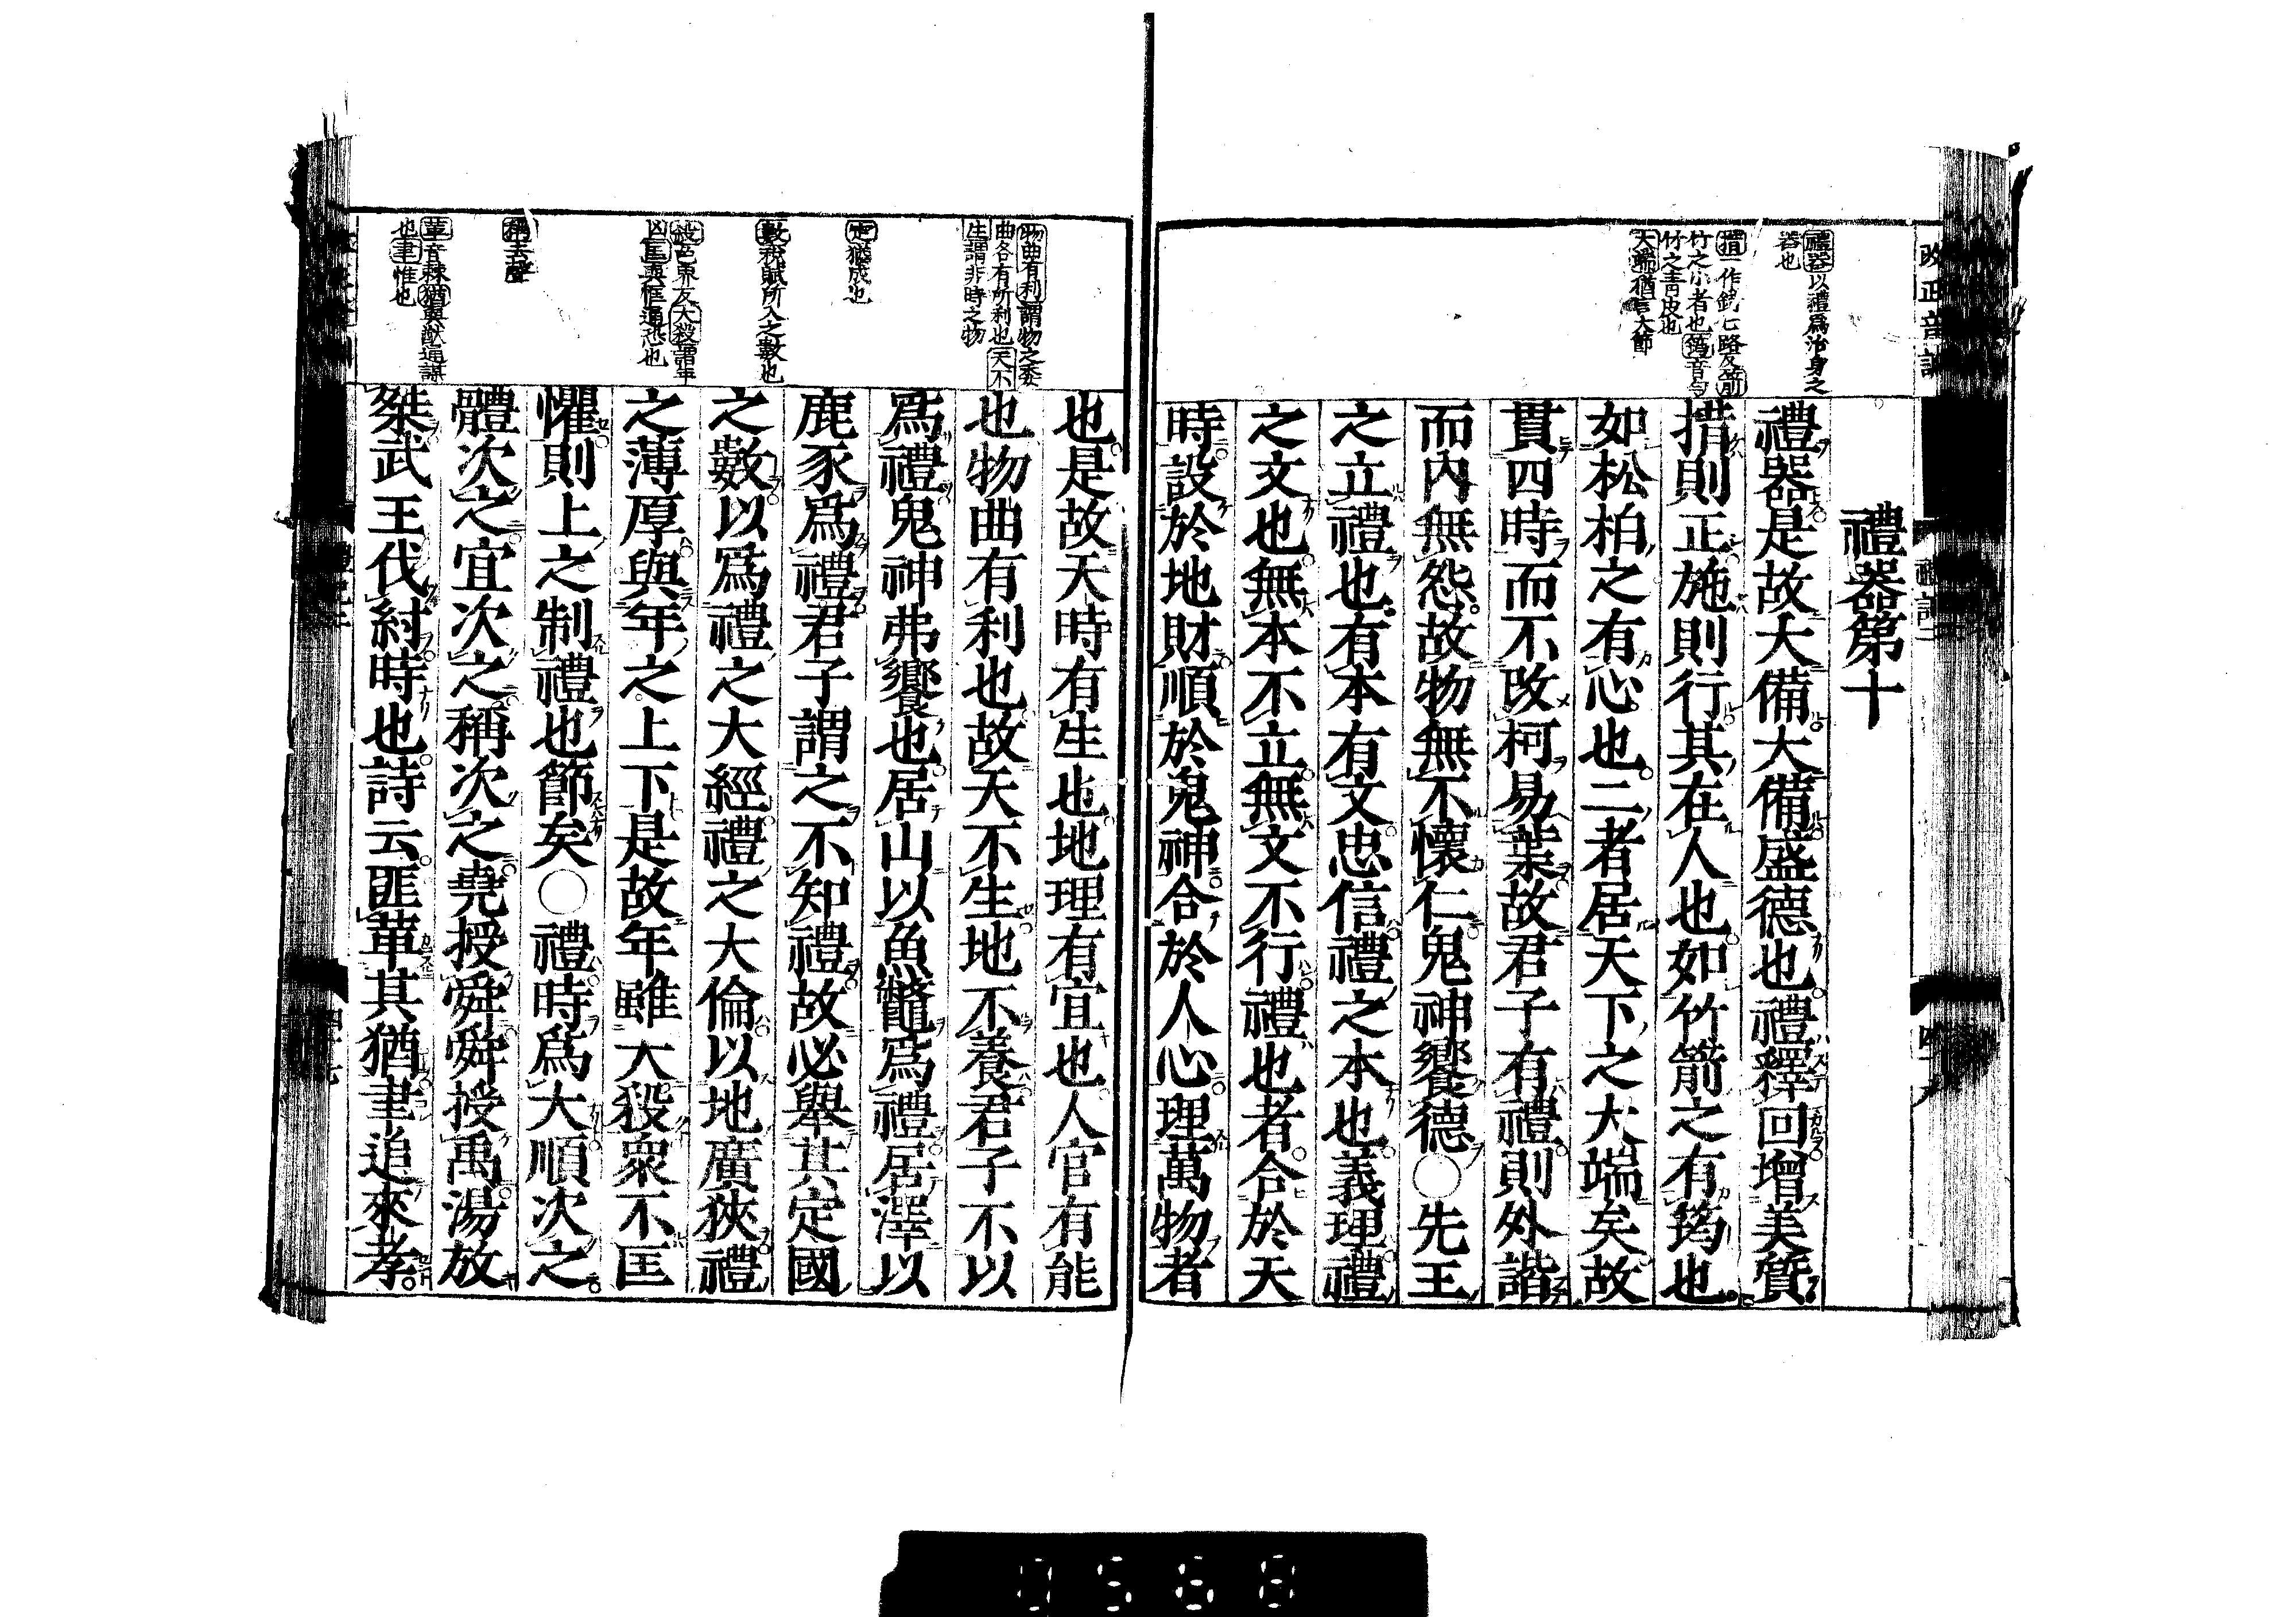 禮器第十
禮器是故大備大備盛德也禮釋回增美質
措則正施則行其在人也如竹箭之有筠也
如松柏之有心也二者居天下之大端矣故
貫四時而不改柯易葉故君子有禮則外諧
而內無怨故物無不懷仁鬼神饗德○先王
之立禮也有本有文忠信禮之本也義理禮
之文也無本不立無文不行禮也者合於天
時設於地財順於鬼神合於人心理萬物者
也是故天時有生也地理有宜也人官有能
也物曲有利也故天不生地不養君子不以
爲禮鬼神弗饗也居山以魚鼈爲禮居澤以
鹿豕爲禮君子謂之不知禮故必舉其定國
之數以爲禮之大經禮之大倫以地廣狹禮
之薄厚與年之上下是故年雖大殺衆不匡
懼則上之制禮也節矣○禮時爲大順次之
體次之宜次之稱次之堯授舜舜授禹湯放
桀武王代紂時也詩云匪革其猶聿追來孝
禮器以禮爲治身之
器也
措一作錯七路反箭
竹之小者也筠音勻
竹之青皮也
大端猶言大節
物曲有利謂物之委
曲各有所利也天不
生謂非時之物
定猶成也
數税賦所入之數也
殺色界反大殺謂年
凶匡與恇通恐也
稱去聲
革音棘猶與猷通謀
也聿惟也
0588